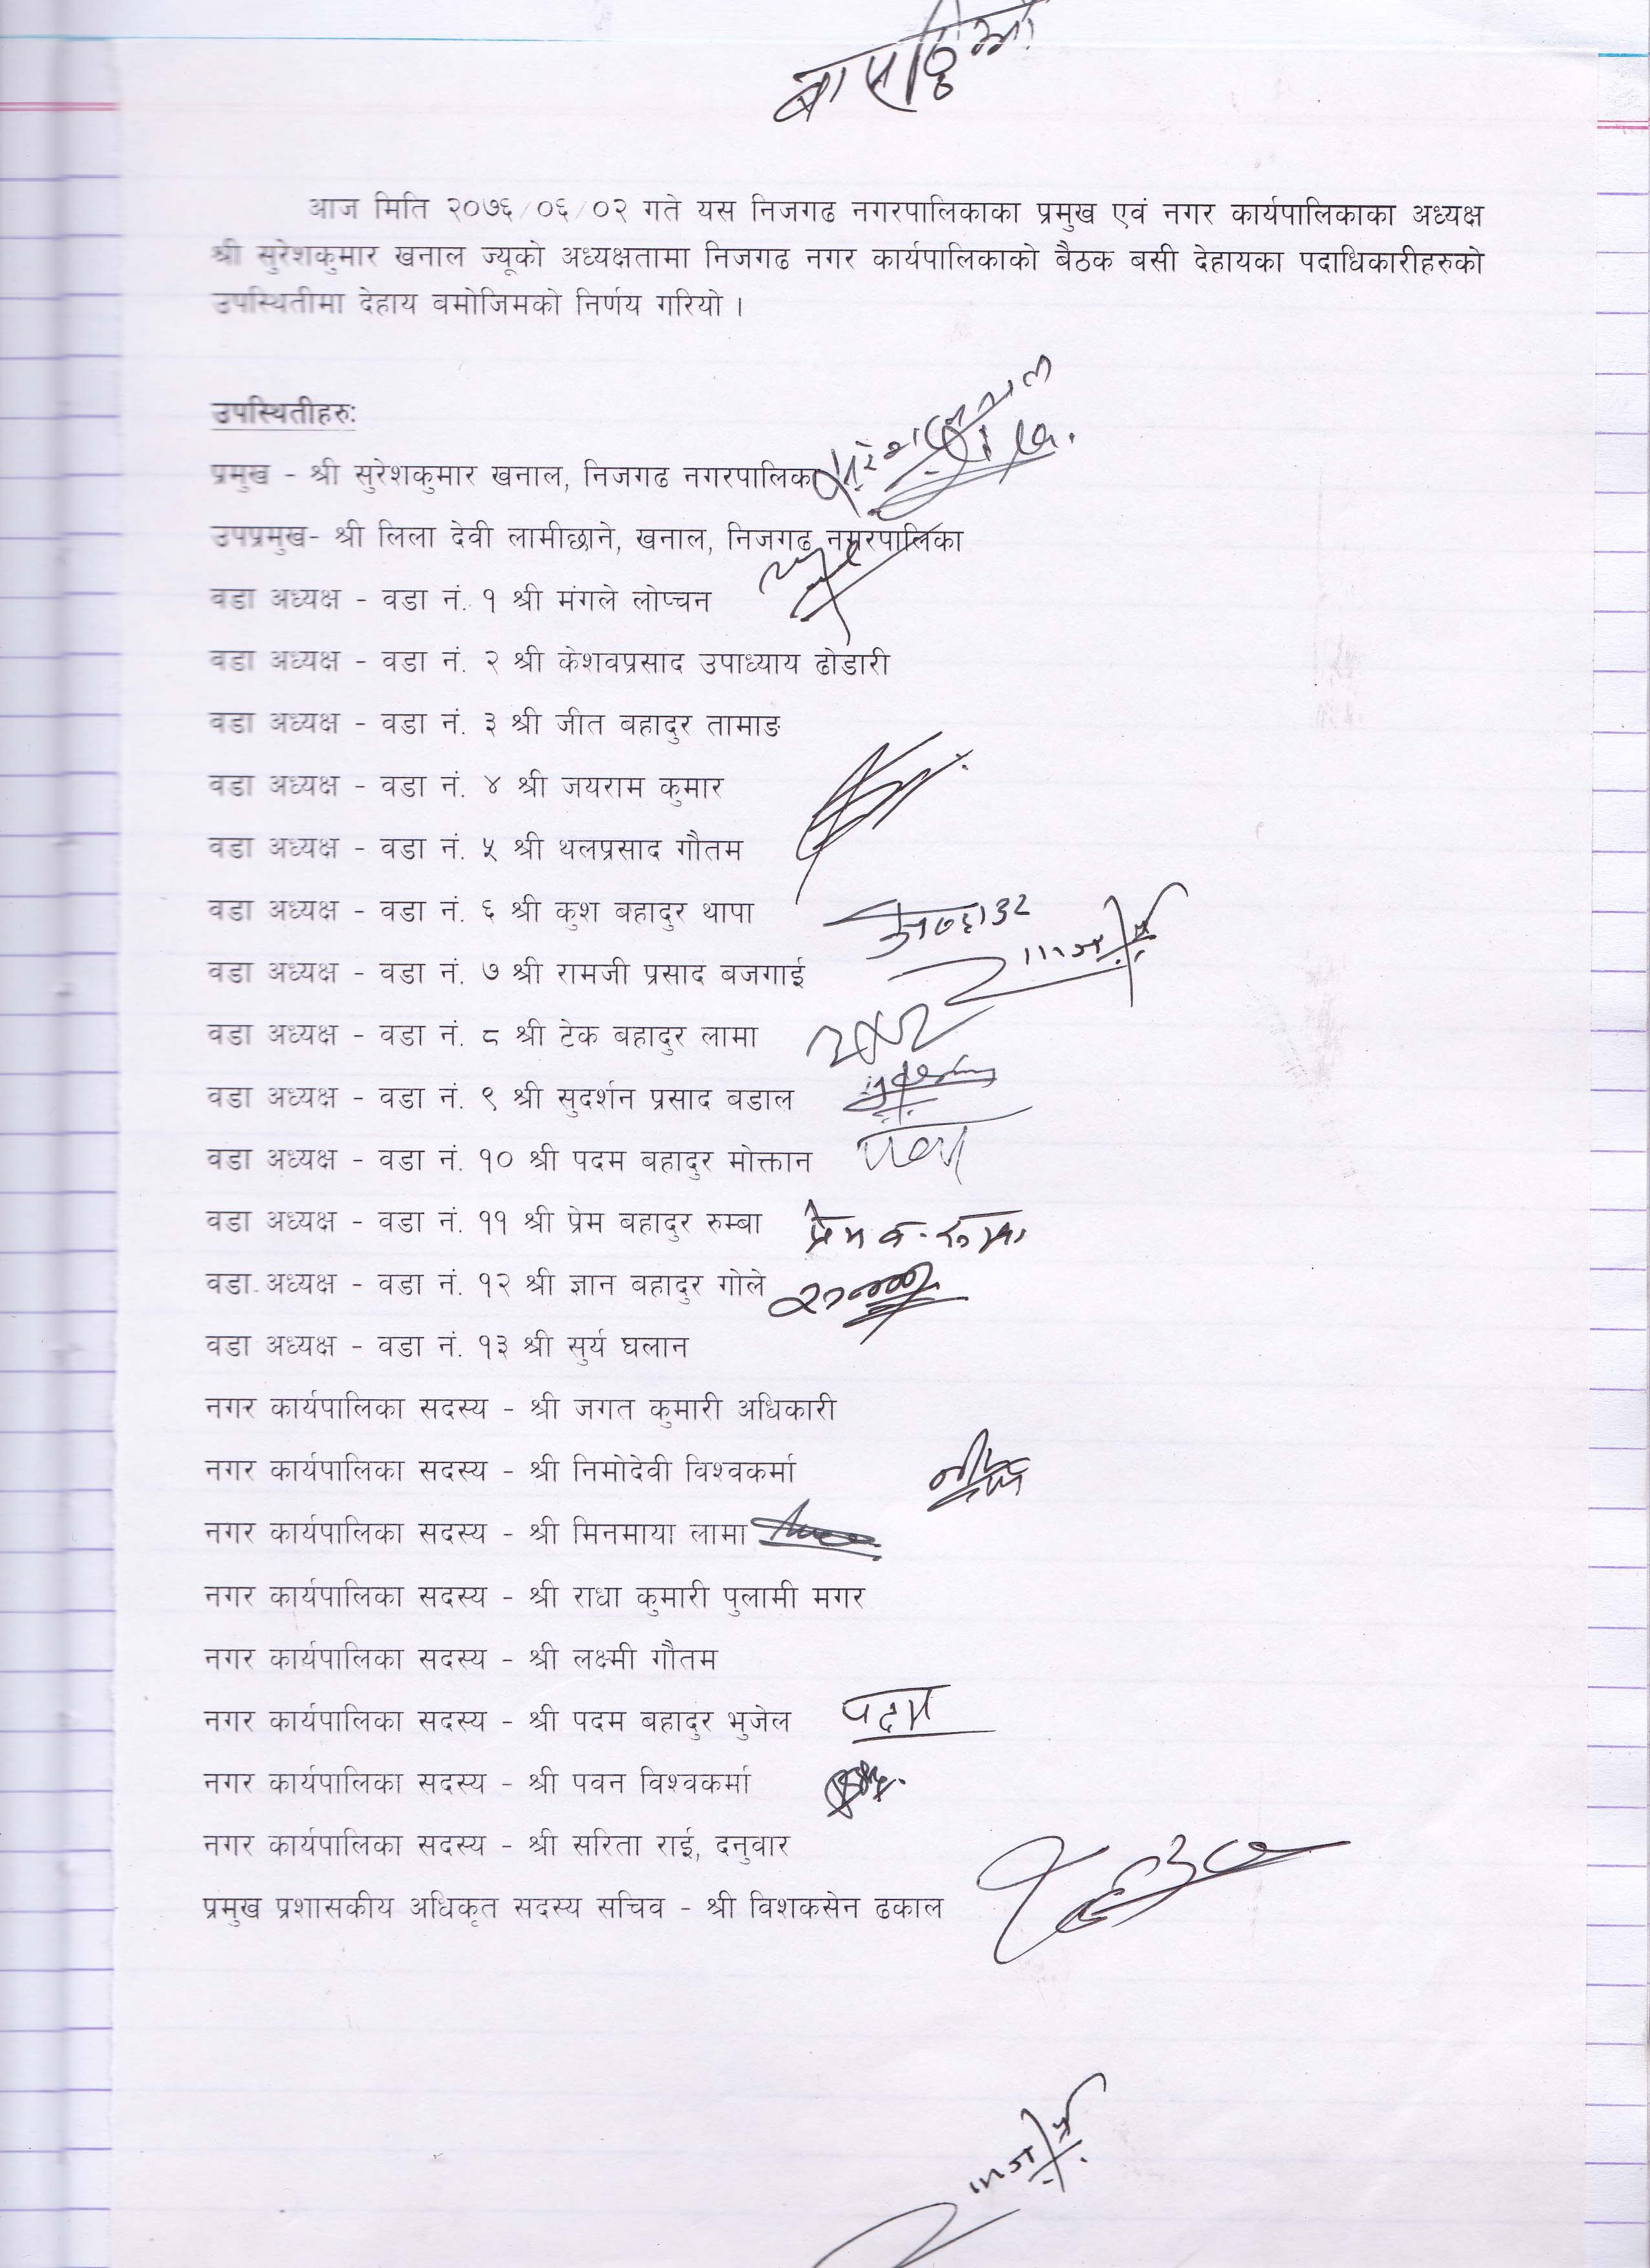 आज मिति २०७६/०६/०२ गते यस निजगढ नगरपालिकाका प्रमुख एवं नगर कार्यपालिकाका अध्यक्ष
श्री सुरेशकुमार खनाल ज्यूको अध्यक्षतामा निजगढ नगर कार्यपालिकाको बैठक बसी देहायका पदाधिकारीहरुको
उपस्थितीमा देहाय बमोजिमको निर्णय गरियो ।
उपस्थितीहरु:
प्रमुख - श्री सुरेशकुमार खनाल, निजगढ नगरपालिका
उपप्रमुख- श्री लिला देवी लामीछाने, खनाल, निजगढ नगरपालिका
वडा अध्यक्ष - वडा नं. १ श्री मंगले लोप्चन
वडा अध्यक्ष - वडा नं. २ श्री केशवप्रसाद उपाध्याय ढोडारी
वडा अध्यक्ष - वडा नं. ३ श्री जीत बहादुर तामाङ
वडा अध्यक्ष - वडा नं. ४ श्री जयराम कुमार
वडा अध्यक्ष - वडा नं. ५ श्री थलप्रसाद गौतम
वडा अध्यक्ष - वडा नं. ६ श्री कुश बहादुर थापा
वडा अध्यक्ष - वडा नं. ७ श्री रामजी प्रसाद बजगाई
वडा अध्यक्ष - वडा नं. ८ श्री टेक बहादुर लामा
वडा अध्यक्ष - वडा नं. ९ श्री सुदर्शन प्रसाद बडाल
वडा अध्यक्ष - वडा नं. १० श्री पदम बहादुर मोक्तान
वडा अध्यक्ष - वडा नं. ११ श्री प्रेम बहादुर रुम्बा प्रेम ब. रुम्बा
वडा अध्यक्ष - वडा नं. १२ श्री ज्ञान बहादुर गोले
वडा अध्यक्ष - वडा नं. १३ श्री सुर्य घलान
नगर कार्यपालिका सदस्य - श्री जगत कुमारी अधिकारी
नगर कार्यपालिका सदस्य - श्री निमोदेवी विश्वकर्मा
नगर कार्यपालिका सदस्य - श्री मिनमाया लामा
नगर कार्यपालिका सदस्य - श्री राधा कुमारी पुलामी मगर
नगर कार्यपालिका सदस्य - श्री लक्ष्मी गौतम
नगर कार्यपालिका सदस्य - श्री पदम बहादुर भुजेल पदम
नगर कार्यपालिका सदस्य - श्री पवन विश्वकर्मा
नगर कार्यपालिका सदस्य - श्री सरिता राई, दनुवार
प्रमुख प्रशासकीय अधिकृत सदस्य सचिव - श्री विशकसेन ढकाल